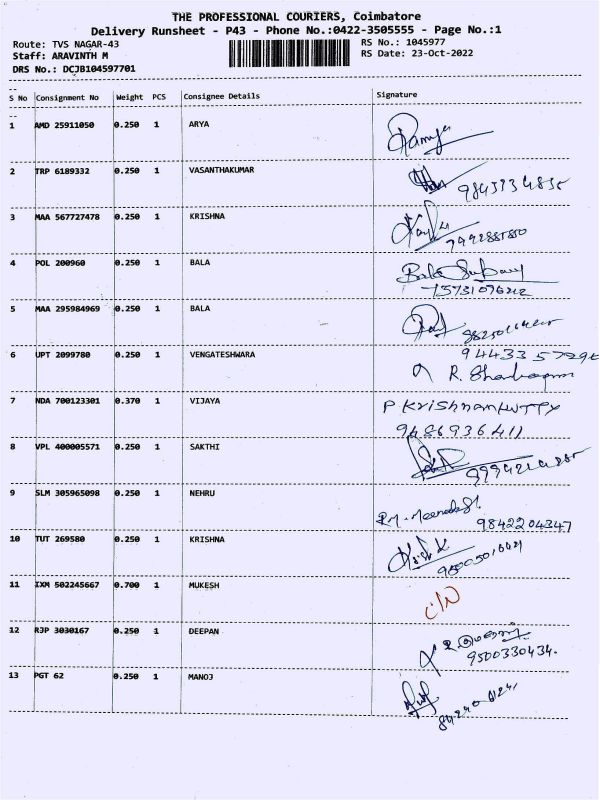 THE PROFESSIONAL COURIERS, Coimbatore
Delivery Runsheet - P43 - Phone No.:0422-3505555 - Page No.:1
Route: TVS NAGAR-43 RS No.: 1045977
Staff: ARAVINTH M RS Date: 23-Oct-2022
DRS No.: DCJB104597701
S No Consignment No Weight PCS Consignee Details Signature
1 AMD 25911050 0.250 1 ARYA
2 TRP 6189332 0.250 1 VASANTHAKUMAR
3 MAA 567727478 0.250 1 KRISHNA
4 POL 200960 0.250 1 BALA
5 MAA 295984969 0.250 1 BALA
6 UPT 2099780 0.250 1 VENGATESHWARA
7 NDA 700123301 0.370 1 VIJAYA P KRISHNANKUTTY
9486936411
8 VPL 400005571 0.250 1 SAKTHI
9 SLM 305965098 0.250 1 NEHRU
9842204347
10 TUT 269580 0.250 1 KRISHNA
11 IXM 502245667 0.700 1 MUKESH
12 RJP 3030167 0.250 1 DEEPAN
9500330434.
13 PGT 62 0.250 1 MANOJ